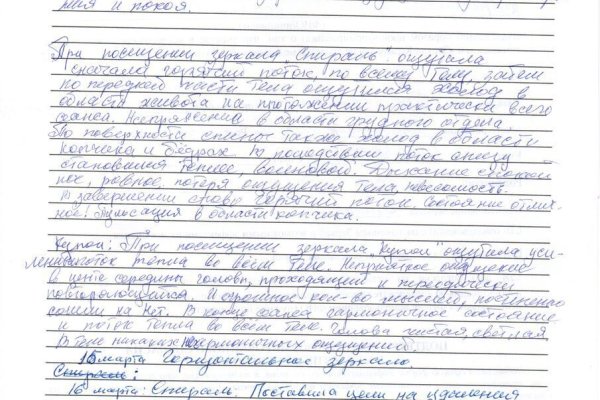 ния и покоя.
При посещении зеркала „Спираль" ощутила
сначала горячий поток, по всему телу, затем
по передней части тела ощущался холод в
области живота на протяжении практически всего
сеанса. Напряжение в области грудного отдела.
По поверхности спины также холод в области
копчика и бёдрах. В последствии поток снизу
становился теплее, волновой. Дыхание спокой
ное, ровное, потеря ощущения тела, невесомость.
В завершении снова горячий поток. Состояние отлич-
ное. Пульсация в области копчика.
Купол: При посещении зеркала „Купол" ощутила уси-
ление поток тепла во всём теле. Неприятное ощущение
в центе середины головы, проходящий и переодически
повторяющийся. И огромное кол-во мыслей, постепенно
сошли на нет. В конце сеанса гармоничное состояние
и поток тепла во всём теле. Голова чистая, светлая,
В теле никаких не гармоничных ощущений.
15 марта Горизонтальное зеркало.
Спираль:
16 марта: Спираль. Поставила цели на удаления